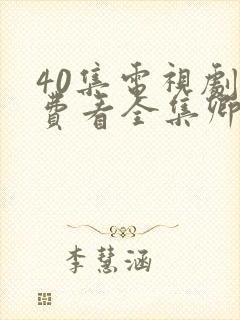 40集電視劇
費看全集卿
李慧涵